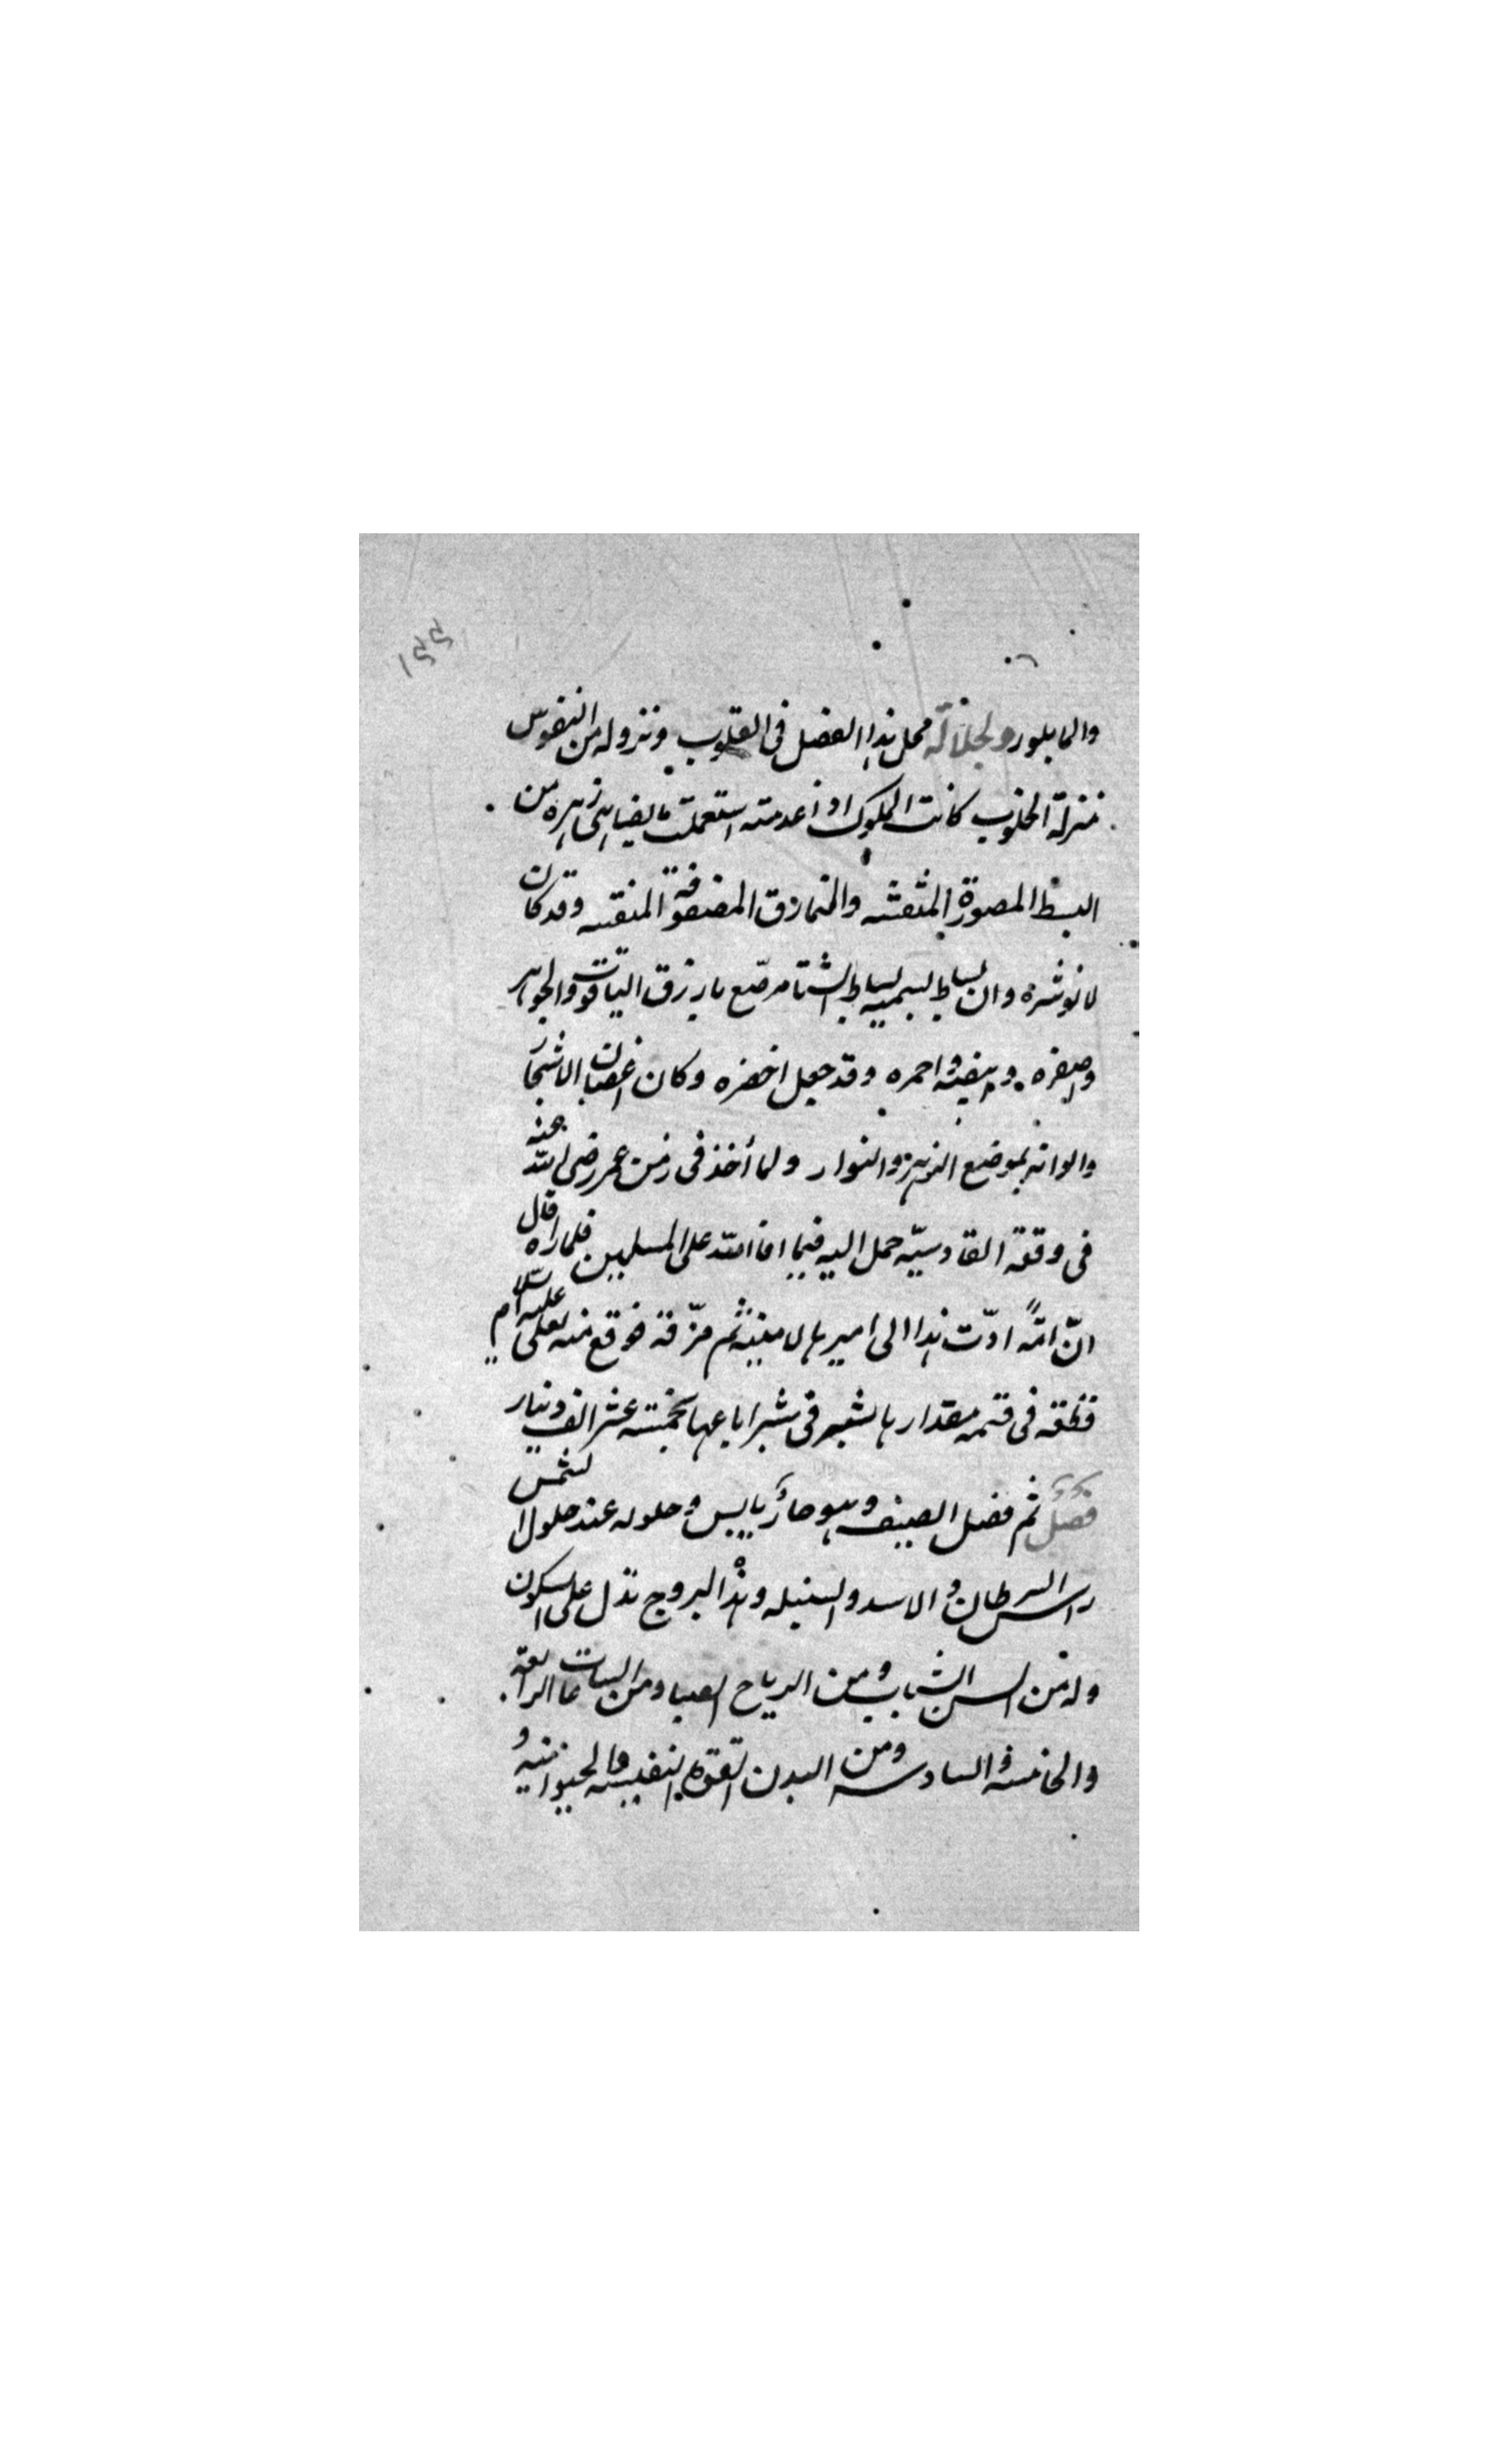 والما بلور ولجلالة محل هذا الفصل فى القلوب ونزوله من النفوس
منزلة الخلوب كانت الملوك اذا عدمته استعملت ما يضاهى زهره من
البسط المصورة المنقشه والنمارق المصفوفة المنقسه وقد كان
لانوشروان بساط يسميه بساط الشتا مرصّع بازرق الياقوت والجواهر
واصفره وابيضه واحمره وقد جعل اخضره وكان اغصان الاشجار
والوانه بموضع الزهر والنوار ولما أخذ فى زمن عمر رضى الله عنه
فى وقعة القادسيّه حمل اليه فيما افا الله على المسلمين فلما راه قال
انّ امّة ادّت هذا الى اميرها لامينه ثم مزّقه فوقع منه لعلى عليه السلام
قطعه فى قسمه مقدارها شبر فى شبر باعها بخمسة عشر الف دينار
فصل ثم فصل الصيف وهو حارّ يابس وحلوله عند حلول الشمس
راس السرطان والاسد والسنبله وهذه البروج تدل على السكون
وله من السن الشباب ومن الرياح الصبا ومن الساعات الرابعة
والخامسه والسادسه ومن البدن القوة النفيسه والحيوانيه و
١٥٥